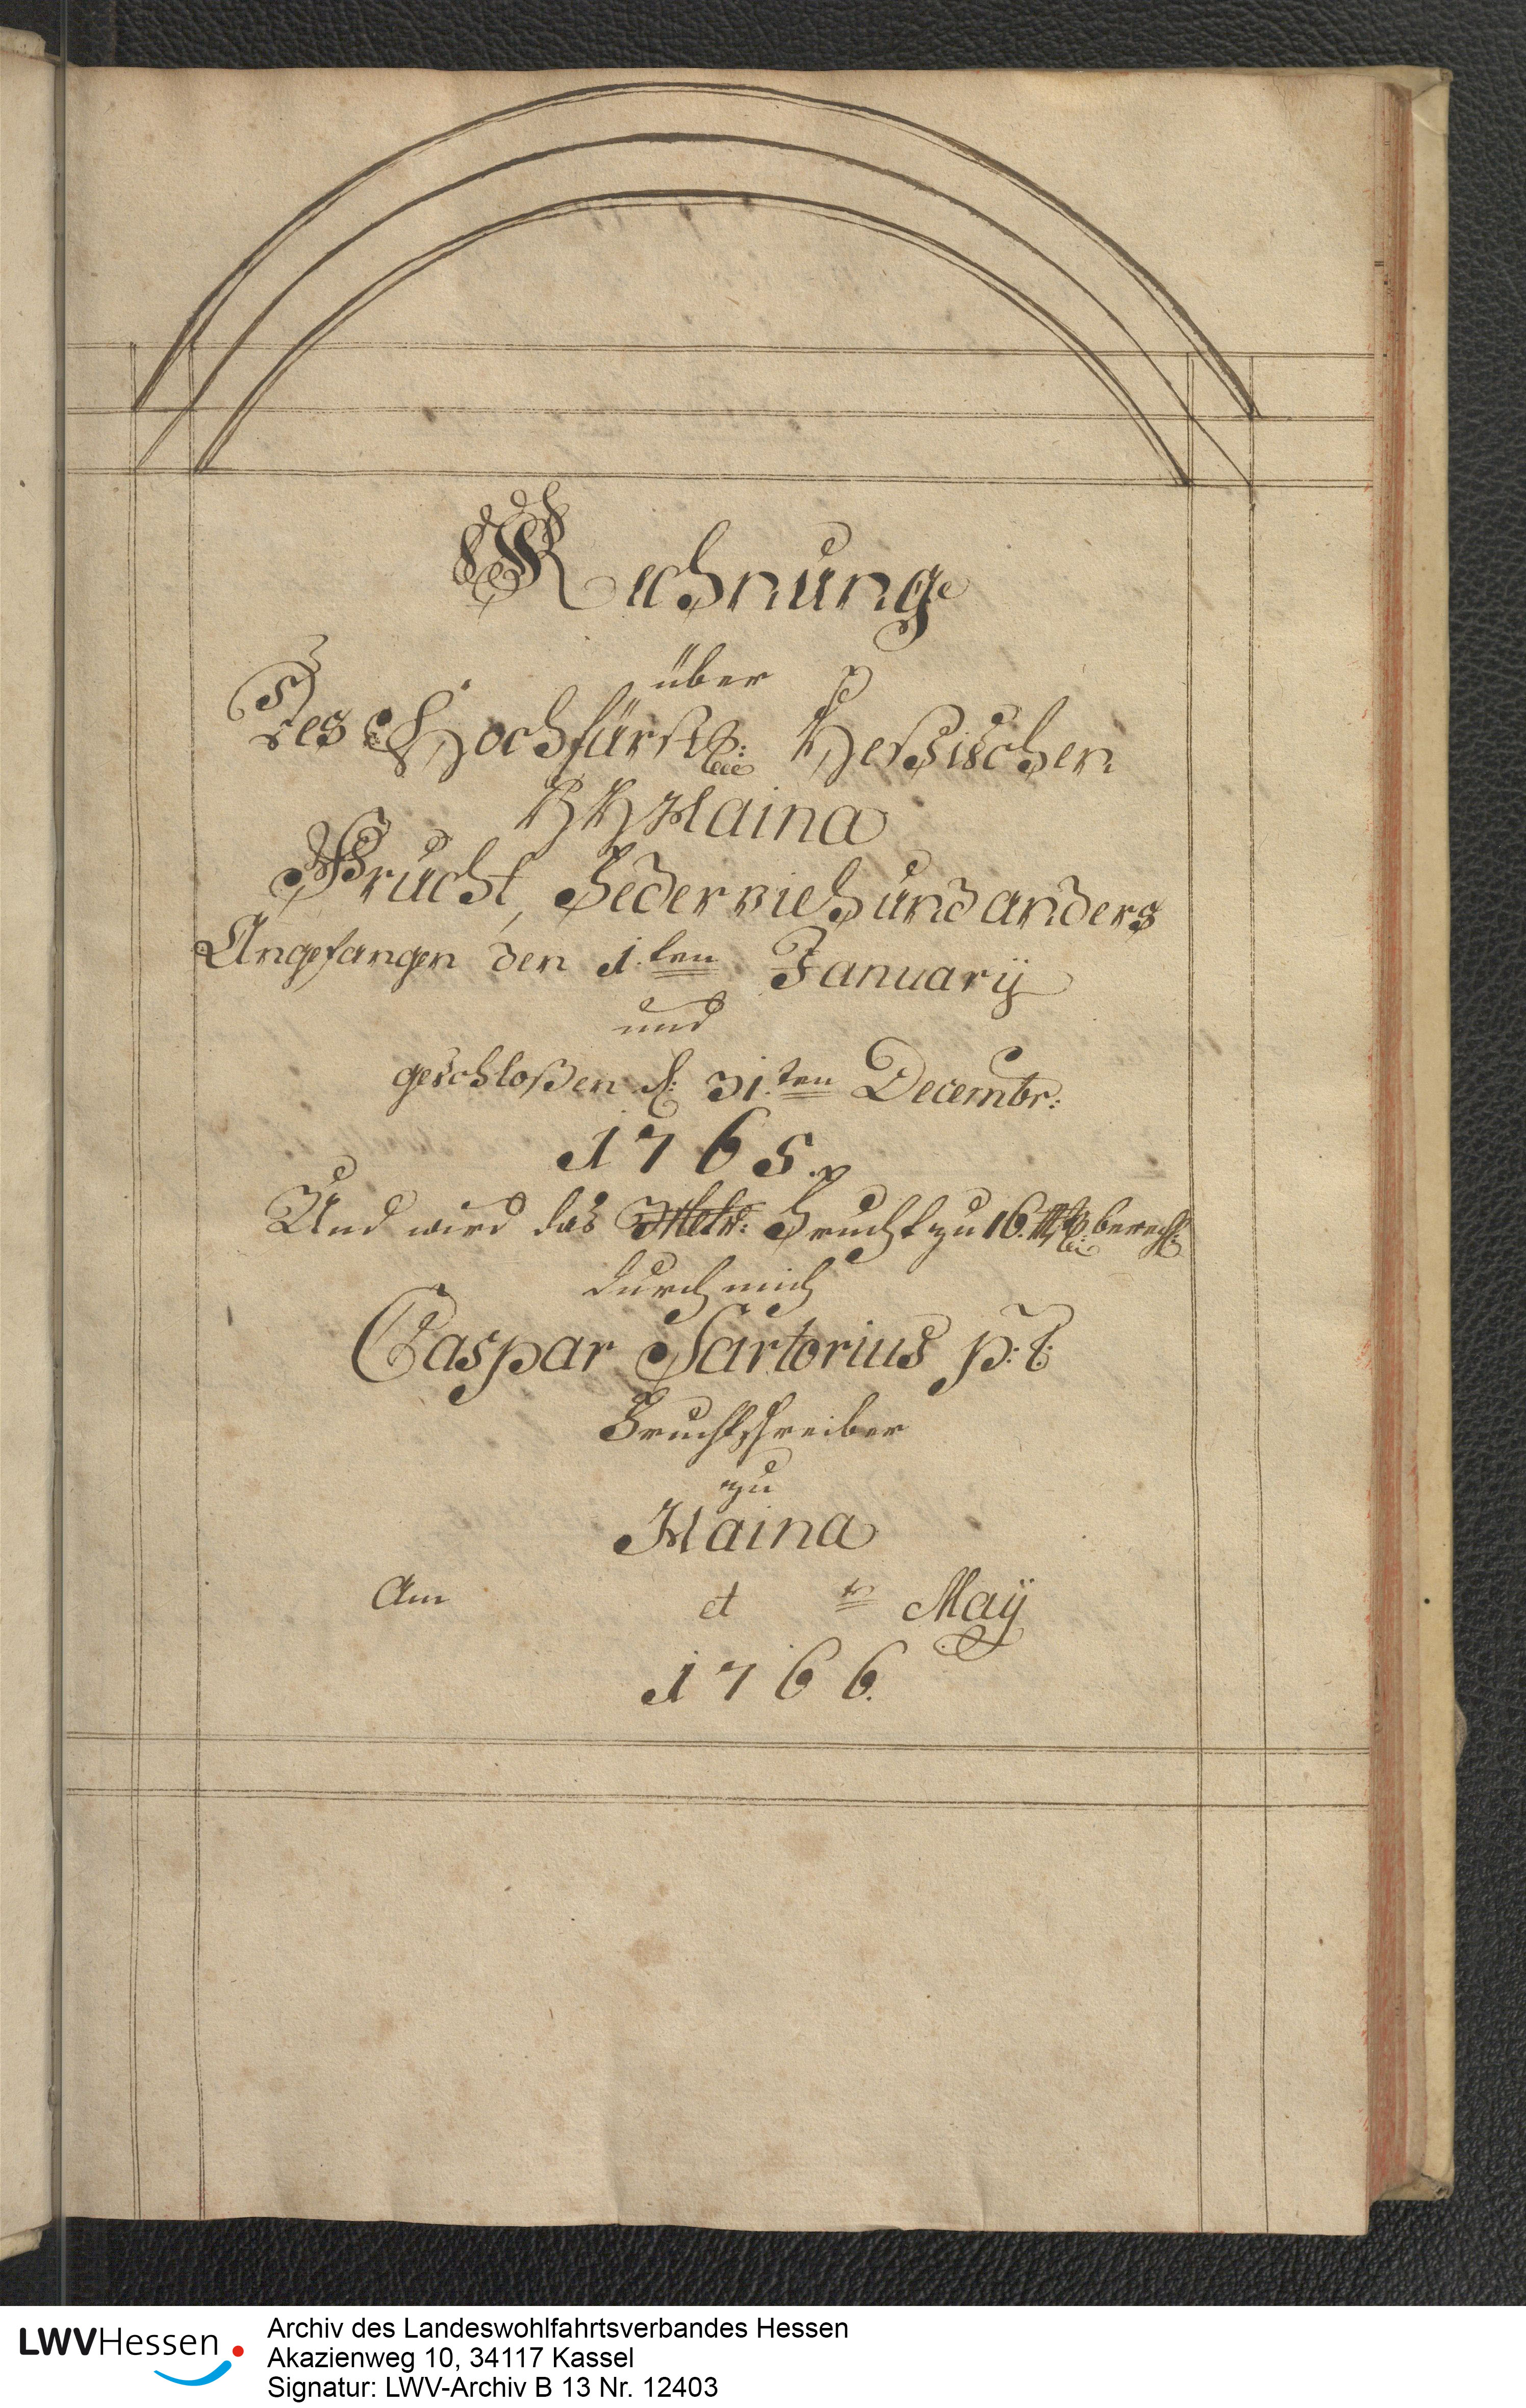 Rechnung
über
Des Hochfürstl: Heßischen
HH Haina
Frucht, Federvieh und anders
Angefangen den 1.ten Januarÿ
und
geschloßen d: 31.ten Decembr:
1765.
Und wird das Frucht zu 16. berech:
durch mich
Caspar Sartorius p: t:
Fruchtschreiber
zu
Haina
Am et ten Maÿ
1766.
LWVHessen
Archiv des Landeswohlfahrtsverbandes Hessen
Akazienweg 10, 34117 Kassel
Signatur: LWV-Archiv B 13 Nr. 12403